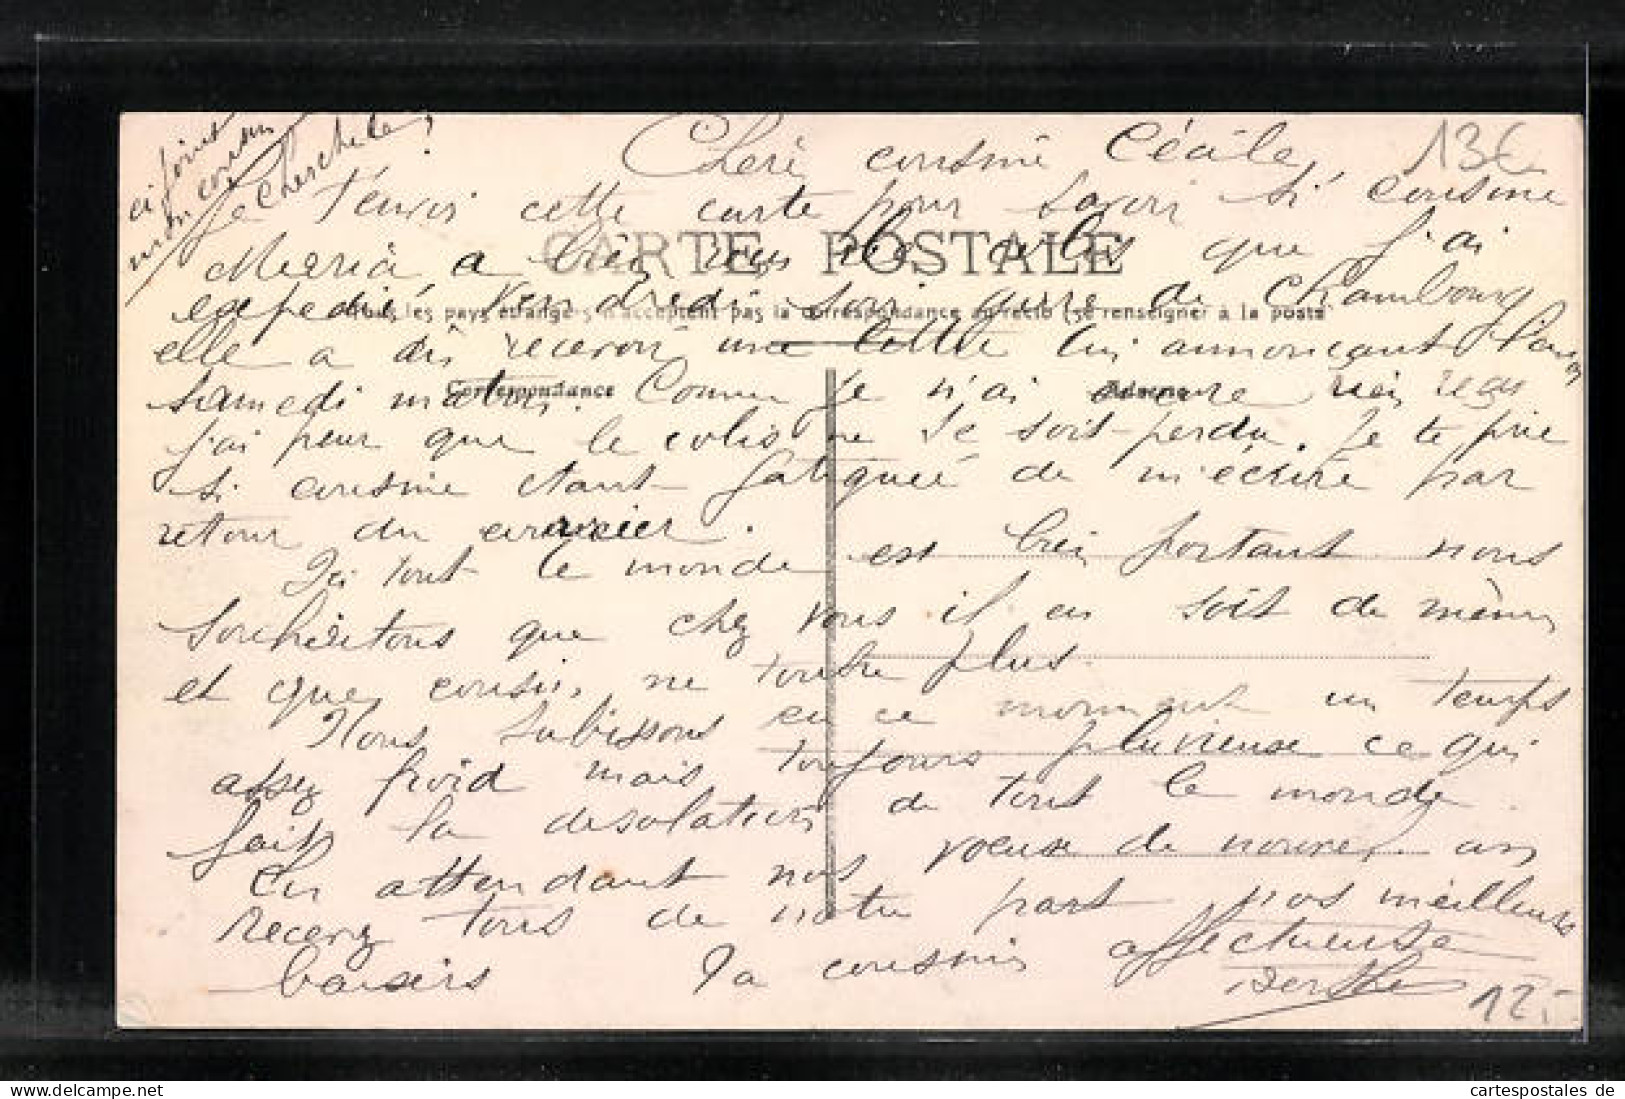 ci joint
mon cousin
Je cherche le,
Cheri cousine Cécile,
13€
Je t'envoi cette carte pour savoir si cousine
Maria a bien reçu les colis que j'ai
CARTE POSTALE
expedié Vendredi soir gare de Chambourg
Tous les pays étrangers n'acceptent pas la correspondance au recto (se renseigner à la poste
elle a dû recevoir une lettre lui annonçant
Correspondance
Adresse
samedi matin. Comme je n'ai encore rien reçu
j'ai peur que le colis ne se soit perdu. Je te prie
si cousine étant fatiguée de m'écrire par
retour du courrier.
Ici tout le monde est bien portant nous
souhaitons que chez vous il en soit de même
et que cousin, ne tousse plus.
Nous subissons en ce moment un temps
assez froid mais toujours pluvieuse ce qui
fait la desolation de tout le monde.
En attendant nos voeux de nouvel an
recevez tous de notre part nos meilleurs
baisers Ta cousine affectueuse
Berthe
12,-
www.delcampe.net
cartespostales de